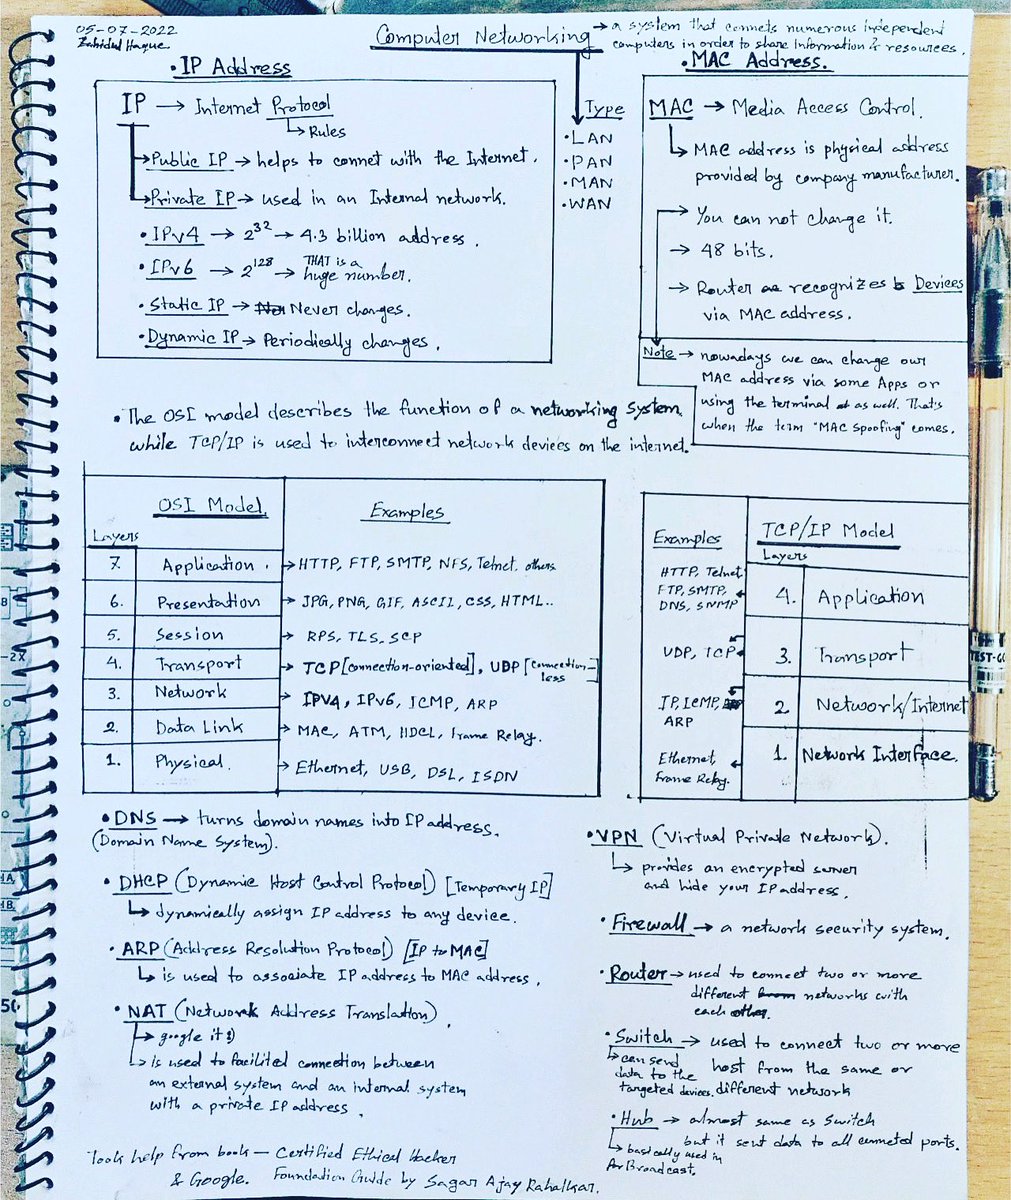 05-07-2022
Zahidul Haque
Computer Networking → a system that connets numerous independent
computers in order to share Information & resources.
• IP Address
IP → Internet Protocol
↳ Rules
→ Public IP → helps to connet with the Internet.
→ Private IP → used in an Internal network.
• IPv4 → 2^32 → 4.3 billion address.
• IPv6 → 2^128 → THAT is a
huge number.
• Static IP → Never changes.
• Dynamic IP → Periodically changes.
Type
• LAN
• PAN
• MAN
• WAN
• MAC Address.
MAC → Media Access Control.
↳ MAC address is physical address
provided by company manufacturer.
→ You can not change it.
→ 48 bits.
→ Router recognizes Devices
via MAC address.
Note → nowadays we can change our
MAC address via some Apps or
using the terminal as well. That's
when the term "MAC spoofing" comes.
• The OSI model describes the function of a networking system,
while TCP/IP is used to interconnect network devices on the internet.
OSI Model Examples
Layers
7. Application. → HTTP, FTP, SMTP, NFS, Telnet, others
6. Presentation → JPG, PNG, GIF, ASCII, CSS, HTML..
5. Session → RPS, TLS, SCP
4. Transport → TCP [connection-oriented], UDP [connection-
less
3. Network → IPV4, IPv6, ICMP, ARP
2. Data Link → MAC, ATM, HDCL, Frame Relay.
1. Physical. → Ethernet, USB, DSL, ISDN
Examples TCP/IP Model
Layers
HTTP, Telnet
FTP, SMTP, 4. Application
DNS, SNMP
UDP, TCP 3. Transport
IP, ICMP, 2. Network/Internet
ARP
Ethernet, 1. Network Interface.
Frame Relay.
• DNS → turns domain names into IP address.
(Domain Name System).
• DHCP (Dynamic Host Control Protocol) [Temporary IP]
↳ dynamically assign IP address to any device.
• ARP (Address Resolution Protocol) [IP to MAC]
↳ is used to associate IP address to MAC address.
• NAT (Network Address Translation).
→ google it :)
→ is used to facilited connection between
an external system and an internal system
with a private IP address.
• VPN (Virtual Private Network).
↳ provides an encrypted server
and hide your IP address.
• Firewall → a network security system.
• Router → used to connect two or more
different networks with
each other.
• Switch → used to connect two or more
host from the same or
different network
↳ can send
data to the
targeted devices.
• Hub → almost same as Switch
but it sent data to all conneted ports.
↳ basically used in
for Broadcast.
Took help from book — Certified Ethical Hacker
& Google. Foundation Guide by Sagar Ajay Rahalkar.